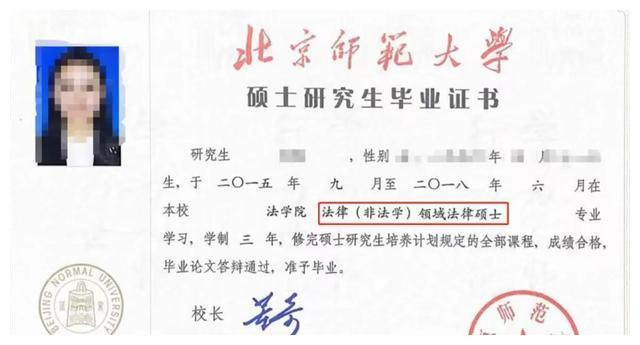 北京师范大学
硕士研究生毕业证书
研究生 ，性别 年 月
生，于二〇一五年 九 月至二〇一八年 六 月在
本校 法学院 法律（非法学）领域法律硕士 专业
学习，学制 三 年，修完硕士研究生培养计划规定的全部课程，成绩合格，
毕业论文答辩通过，准予毕业。
校长
BEIJING NORMAL UNIVERSITY
师范